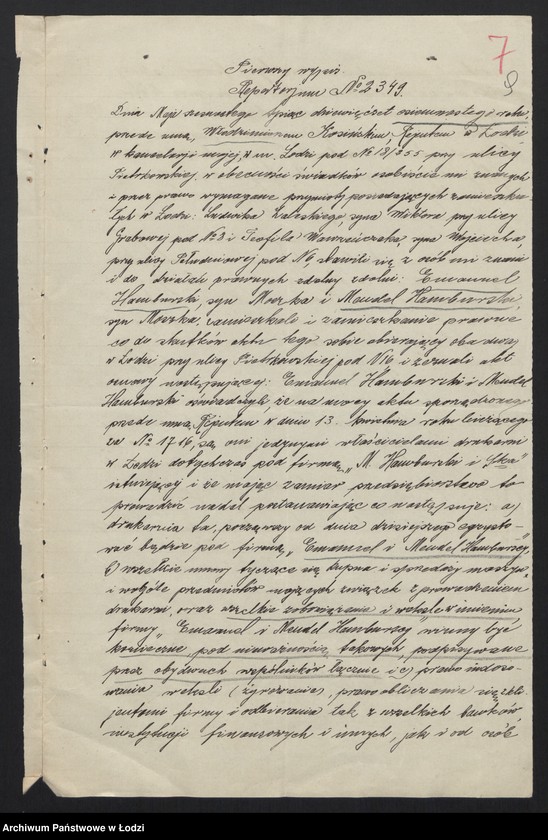 7
9
Pierwszy wypis.
Repertoryum № 2349.
Dnia Maja szesnastego tysiąc dziewięćset osiemnastego roku,
przede mną, Włodzimierzem Kosińskim, Rejentem w Łodzi
w kancelaryi mojej, w m. Łodzi pod № 137/355 przy ulicy
Piotrkowskiej, w obecności świadków osobiście mi znanych
i przez prawo wymagane przymioty posiadających zamieszka-
łych w Łodzi: Ludwika Zaleskiego, syna Wiktora przy ulicy
Grabowej pod № 3 i Teofila Wawrzińczaka, syna Wojciecha
przy ulicy Południowej pod № 6, stawili się z osób mi znani
i do działań prawnych zdolni: Emanuel
Hamburski, syn Moszka i Mendel Hamburski,
syn Moszka, zamieszkali i zamieszkanie prawne
co do skutków aktu tego sobie obierający obadwaj
w Łodzi przy ulicy Piotrkowskiej pod № i zeznali akt
umowy następującej: Emanuel Hamburski i Mendel
Hamburski oświadczyli, że na mocy aktu sporządzonego
przede mną Rejentem w dniu 13 kwietnia roku bieżącego
za № 1716, są oni jedynymi właścicielami drukarni
w Łodzi dotychczas pod firmą „M. Hamburski i S-ka"
istniejącej i że mając zamiar przedsiębiorstwo to
prowadzić nadal postanawiają co następuje: a)
drukarnia ta, począwszy od dnia dzisiejszego egzysto-
wać będzie pod firmą „Emanuel i Mendel Hamburscy",
b) wszelkie umowy tyczące się kupna i sprzedaży maszyn
i wogóle przedmiotów mających związek z prowadzeniem
drukarni, oraz wszelkie zobowiązania i weksle w imieniu
firmy „Emanuel i Mendel Hamburscy" winny być
koniecznie pod nieważnością takowych podpisywane
przez obydwuch wspólników łącznie i c) prawo indoso-
wania weksli (żyrowania), prawo obliczania się z kli-
jentami firmy i odbierania tak z wszelkich banków
instytucji finansowych i innych, jak i od osób
Archiwum Państwowe w Łodzi